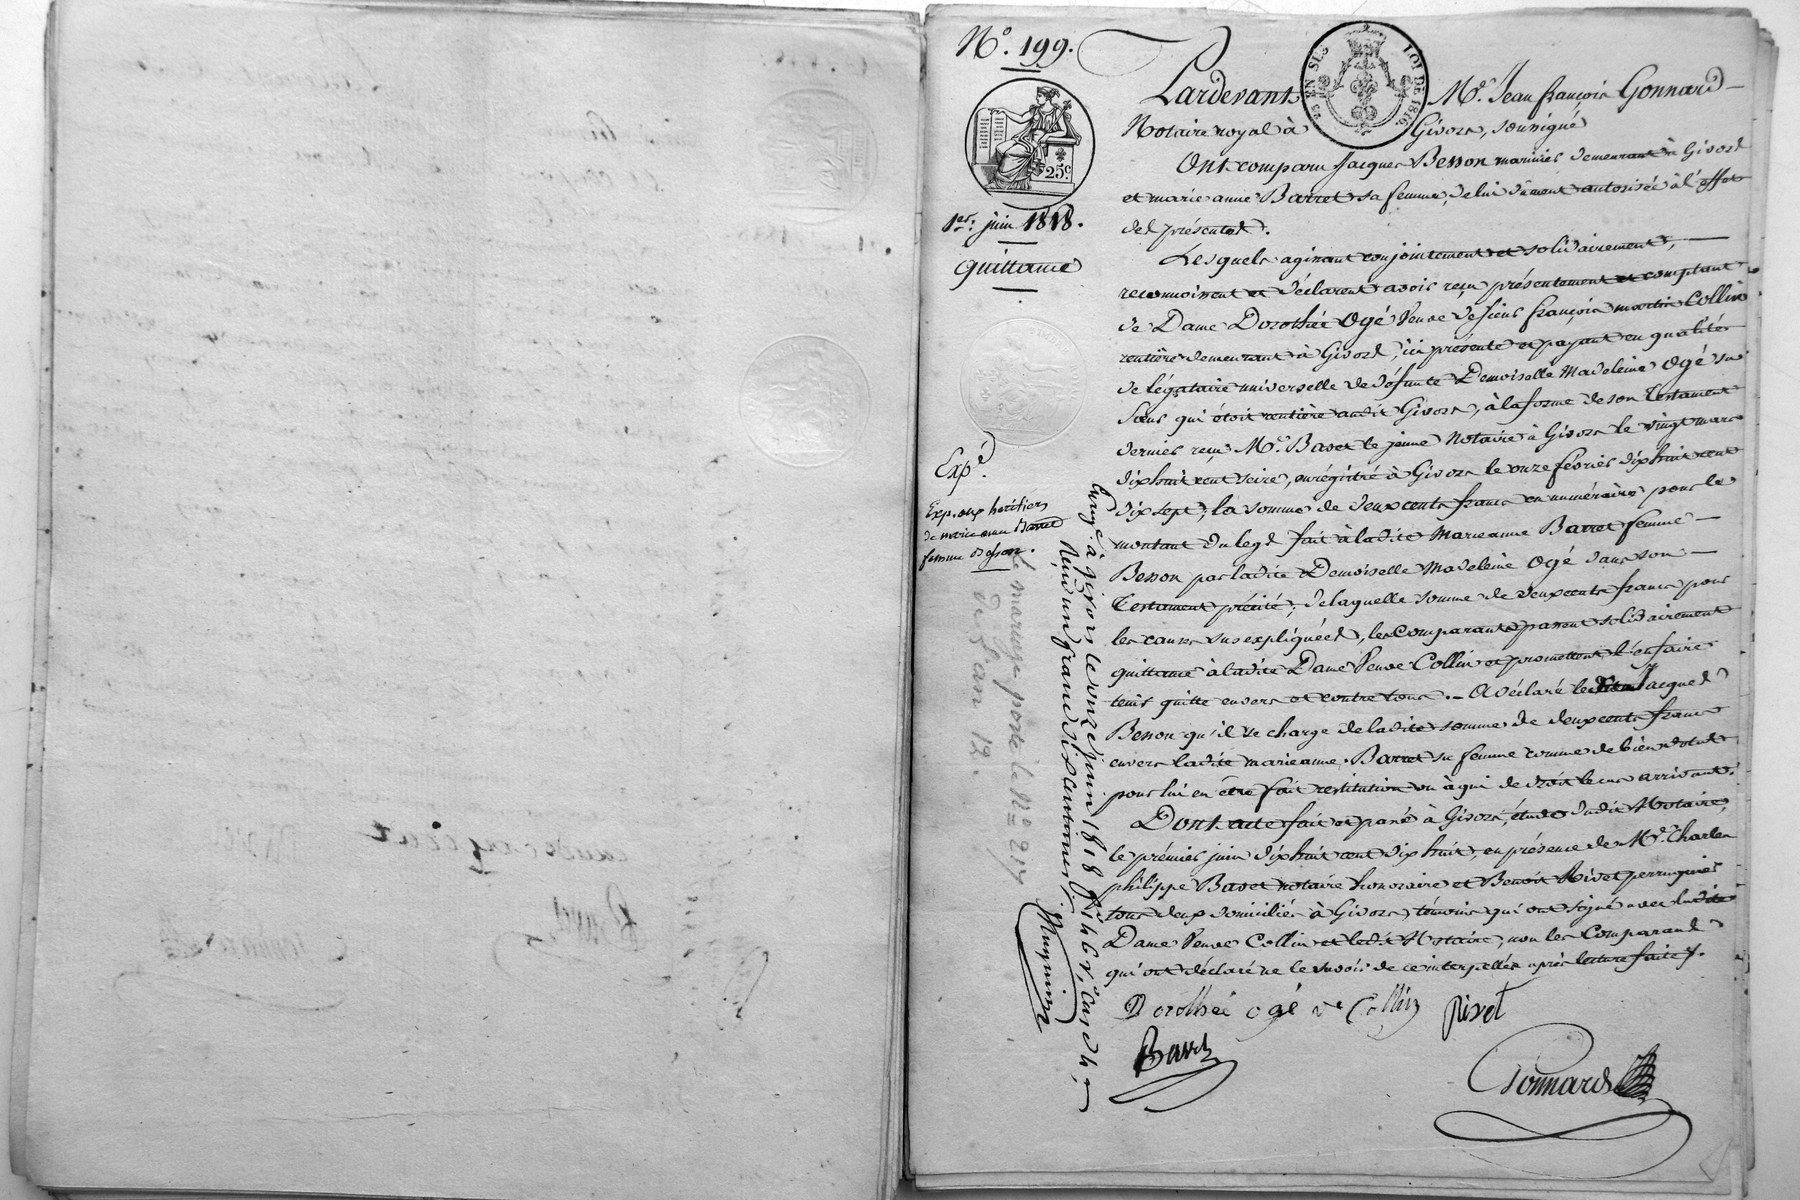 N.º 199.
EN SUS
LOI DE 1816.
25.c
1er. juin 1818.
Quittance
Expé.
Exp. aux heritiers
de marie anne Barret
femme Besson.
Pardevant Me. Jean françois Gonnard
Notaire royal à Givors, soussigné
Ont comparu Jacques Besson marinier demeurant à Givors
et marie anne Barret sa femme, de lui dûment autorisée à l'effet
des présentes.
Lesquels agissant conjointement et solidairement,
reconnoissent et déclarent avoir reçu présentement et comptant
de Dame Dorothée Ogé Veuve de Sieur françois martin Collin
rentière demeurant à Givors, ici présente et payant en qualité
de légataire universelle de défunte Demoiselle Madeleine Ogé sa
Sœur qui étoit rentière audit Givors, à la forme de son Testament
dernier reçu Me. Bavet le jeune Notaire à Givors le vingt mars
dix huit cent seize, enrégistré à Givors le onze février dix huit cent
dix sept; la somme de deux cents francs en numéraire pour le
montant du legs fait à ladite Marieanne Barret femme
Besson par ladite Demoiselle Madeleine Ogé dans son
Testament précité; de laquelle somme de deux cents francs pour
les causes susexpliquées, les Comparants passent solidairement
quittance à ladite Dame Veuve Collin et promettent l'en faire
tenir quitte envers et contre tous. A déclaré le Jacques
Besson qu'il se charge de ladite somme de deux cents francs
envers ladite marieanne Barret sa femme comme de bien dotal
pour lui en être fait restitution ou à qui de droit le cas arrivant.
Dont acte fait et passé à Givors, étude dudit Notaire,
le prémier juin dix huit cent dix huit, en présence de Me. Charles
philippe Bavet notaire honoraire et Benoit Rivet perruquier
tous deux domiciliés à Givors, témoins qui ont signé avec ladite
Dame Veuve Collin et ledit Notaire, non les Comparants
qui ont déclaré ne le savoir de ce interpellés après lecture faite.
Dorothée ogé ve Collin Rivet
Bavet
Gonnard
Enregé. à givors le onze juin 1818 fo. 146 vo. case 4,
Reçu un franc dix centimes
le mariage porte le No 217
de l'an 12.